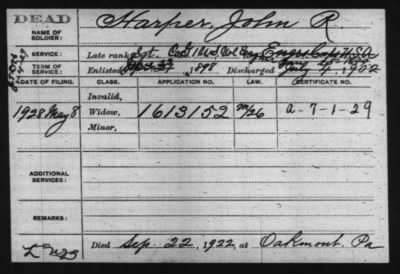 DEAD
Harper, John R.
NAME OF SOLDIER:
SERVICE:
Late rank Sgt. Co. 1 U.S. Vol. Engrs
TERM OF SERVICE:
Enlisted 1898 Discharged July 4, 1902
DATE OF FILING. CLASS. APPLICATION NO. LAW. CERTIFICATE NO.
Invalid,
1928 May 8 Widow, 1613152 a-7-1-29
Minor,
ADDITIONAL SERVICES:
REMARKS:
Died Sep. 22, 1922, at Oakmont, Pa